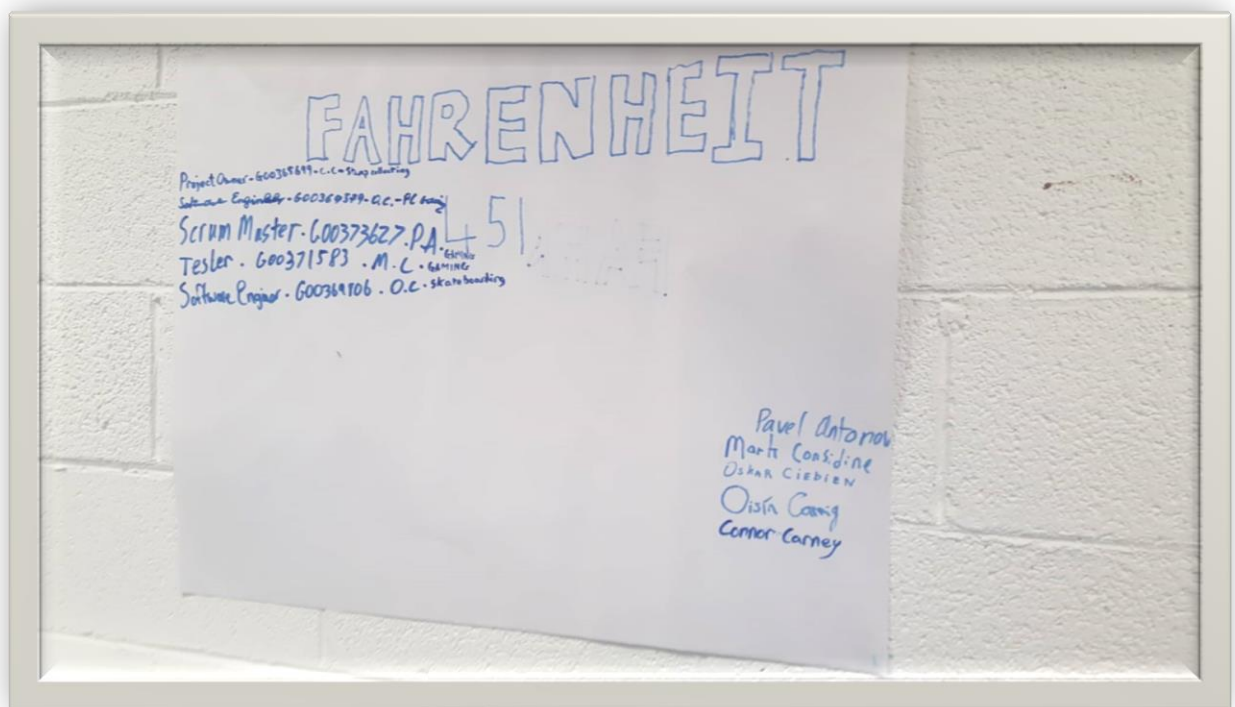 FAHRENHEIT
Project Owner - G00365699 - C.C - Stamp collecting
Software Engineer - G00369379 - O.C. - PC
451
Scrum Master. G00373627. P.A. GAMING
Tester. G00371583. M.C. GAMING
Software Engineer. G00369106. O.C. Skateboarding
Pavel Antonov
Mark Considine
OSKAR CIEBIEN
Oisín
Connor Carney